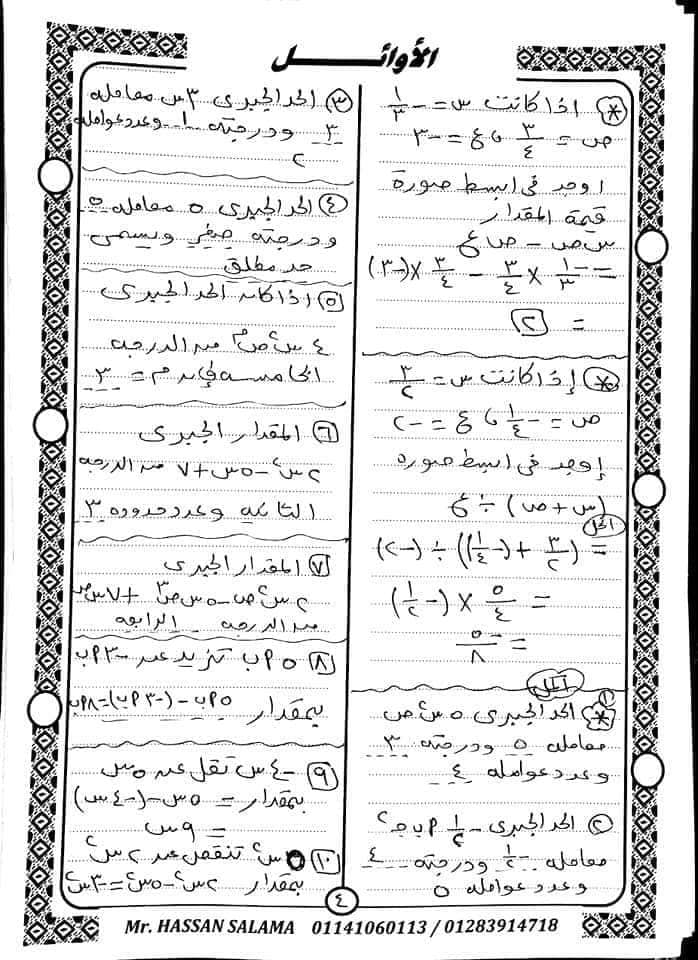 الأوائل
* اذا كانت س = -١/٣
ص = ٣/٤ ، ع = -٣
اوجد فى ابسط صورة
قيمة المقدار
س ص - ص ع
= -١/٣ × ٣/٤ - ٣/٤ × (-٣)
= ٢
* إذا كانت س = ٣/٢
ص = -١/٤ ، ع = -٢
إوجد فى ابسط صوره
(س + ص) ÷ ع
الحل
= (٣/٢ + (-١/٤)) ÷ (-٢)
= ٥/٤ × (-١/٢)
= -٥/٨
أكمل
١ * الحد الجبرى ٥ س٢ ص
معامله ٥ ودرجته ٣
وعدد عوامله ٤
٢ الحد الجبرى -١/٢ م ب ج٢
معامله -١/٢ ودرجته ٤
وعدد عوامله ٥
٣ الحد الجبرى ٣ س معامله
٣ ودرجته ١ وعدد عوامله
٢
٤ الحد الجبرى ٥ معامله ٥
ودرجته صفر ويسمى
حد مطلق
٥ اذا كان الحد الجبرى
٤ س٢ ص^م من الدرجه
الخامسه فإن م = ٣
٦ المقدار الجبرى
٢ س٢ - ٥ س + ٧ من الدرجه
الثانيه وعدد حدوده ٣
٧ المقدار الجبرى
٢ س٢ ص - ٥ س ص٣ + ٧ س ص
من الدرجه الرابعه
٨ ٥ م ب تزيد عن -٣ م ب
بمقدار ٥ م ب - (-٣ م ب) = ٨ م ب
٩ -٤ س تقل عن ٥ س
بمقدار = ٥ س - (-٤ س)
= ٩ س
١٠ ٥ س٢ تنقص عن ٢ س٢
بمقدار ٢ س٢ - ٥ س٢ = -٣ س٢
٤
Mr. HASSAN SALAMA 01141060113 / 01283914718